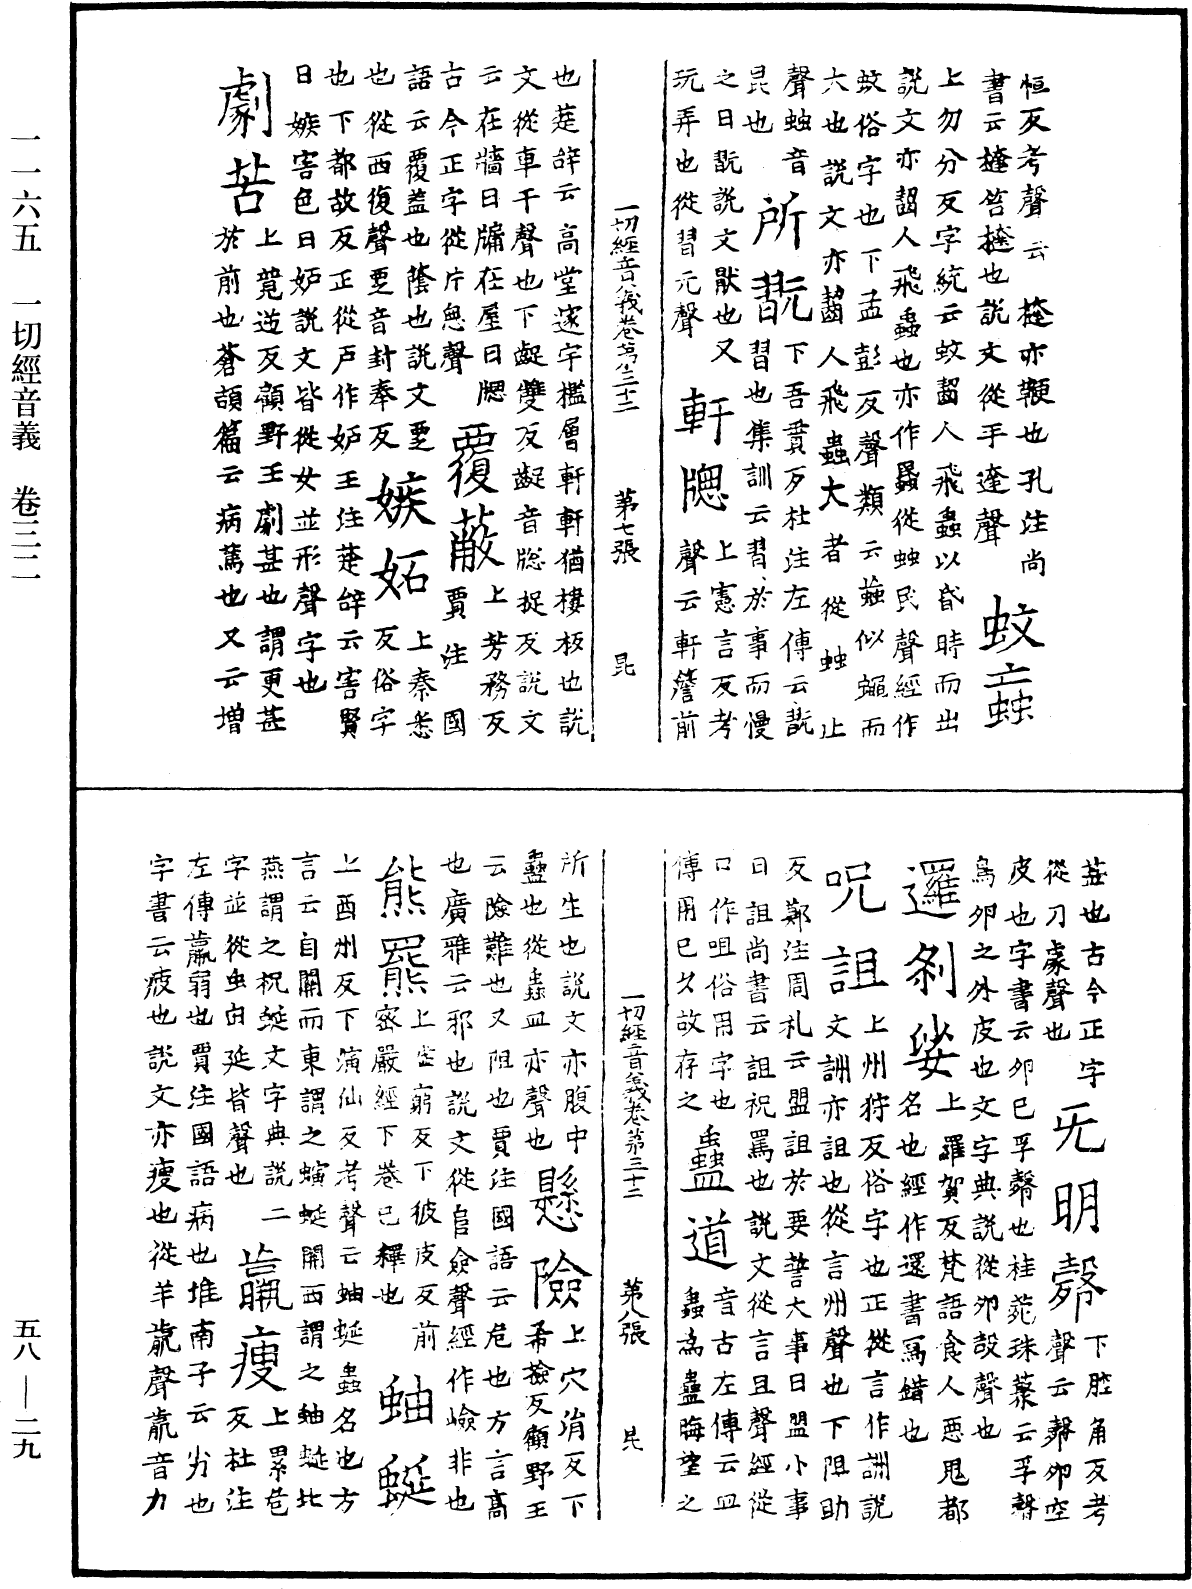 恒反考聲云揰亦鞭也孔注尚
書云撻笞撻也說文從手達聲 蚊䖟
上勿分反字統云蚊齧人飛蟲以昏時而出
說文亦齧人飛蟲也亦作蟁從䖵民聲經作
蚊俗字也下孟彭反聲類云䖟似蠅而
大也說文亦齧人飛蟲大者從䖵亡
聲䖵音昆也 所翫 下吾貫反杜注左傳云翫
習也集訓云習於事而慢
之曰翫說文猒也又
玩弄也從習元聲 軒牎 上憲言反考聲云軒簷前
一切經音義卷第三十二 第七張 昆
也楚辞云高堂邃宇檻層軒軒猶樓板也說
文從車干聲也下齪雙反齪音牎捉反說文
云在牆曰牖在屋曰牎
古今正字從片悤聲 覆蔽 上芳務反賈注國
語云覆蓋也蔭也說文覂
也從襾復聲覂音封奉反 嫉妬 上秦悉反俗字
也下都故反正從戶作妒王注楚辞云害賢
曰嫉害色曰妒說文皆從女並形聲字也
劇苦 上竟逆反顧野王劇甚也謂更甚
於前也蒼頡篇云病篤也又云增
益也古今正字
從刀豦聲也 无明㲉 下腔角反考聲云㲉卵空
皮也字書云卵已孚㲉也桂菀珠叢云孚㲉
鳥卵之外皮也文字典說從卵㱿聲也
邏剎娑 上羅賀反梵語食人惡鬼都
名也經作還書寫錯也
呪詛 上州狩反俗字也正從言作詶說
文詶亦詛也從言州聲也下阻助
反鄭注周礼云盟詛於要誓大事曰盟小事
曰詛尚書云詛祝罵也說文從言且聲經從
口作咀俗用字也
傳用已久故存之 蠱道 音古左傳云皿
蟲為蠱晦望之
一切經音義卷第三十二 第八張 昆
所生也說文亦腹中
蠱也從蟲皿亦聲也 懸險 上穴涓反下
希撿反顧野王
云險難也又阻也賈注國語云危也方言高
也廣雅云邪也說文從𨸏僉聲經作嶮非也
熊羆 上㞢窮反下彼皮反前
密嚴經下卷已釋也 蚰蜒
上酉州反下演仙反考聲云蚰蜒蟲名也方
言云自關而東謂之螾蜓關西謂之蚰蜒北
燕謂之杘蜒文字典說二
字並從虫由延皆聲也 羸瘦 上累危反杜注
左傳羸弱也賈注國語病也淮南子云劣也
字書云疲也說文亦瘦也從羊𣎆聲𣎆音力
一一六五 一切經音義 卷三二
五八—二九